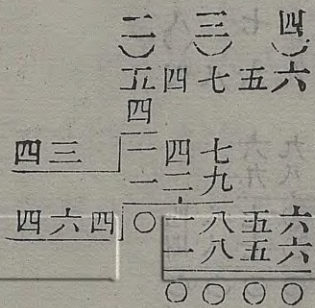 二 三 四
五四七五六
四
四三 一四七
一二九
四六四 〇一八五六
一八五六
〇〇〇〇